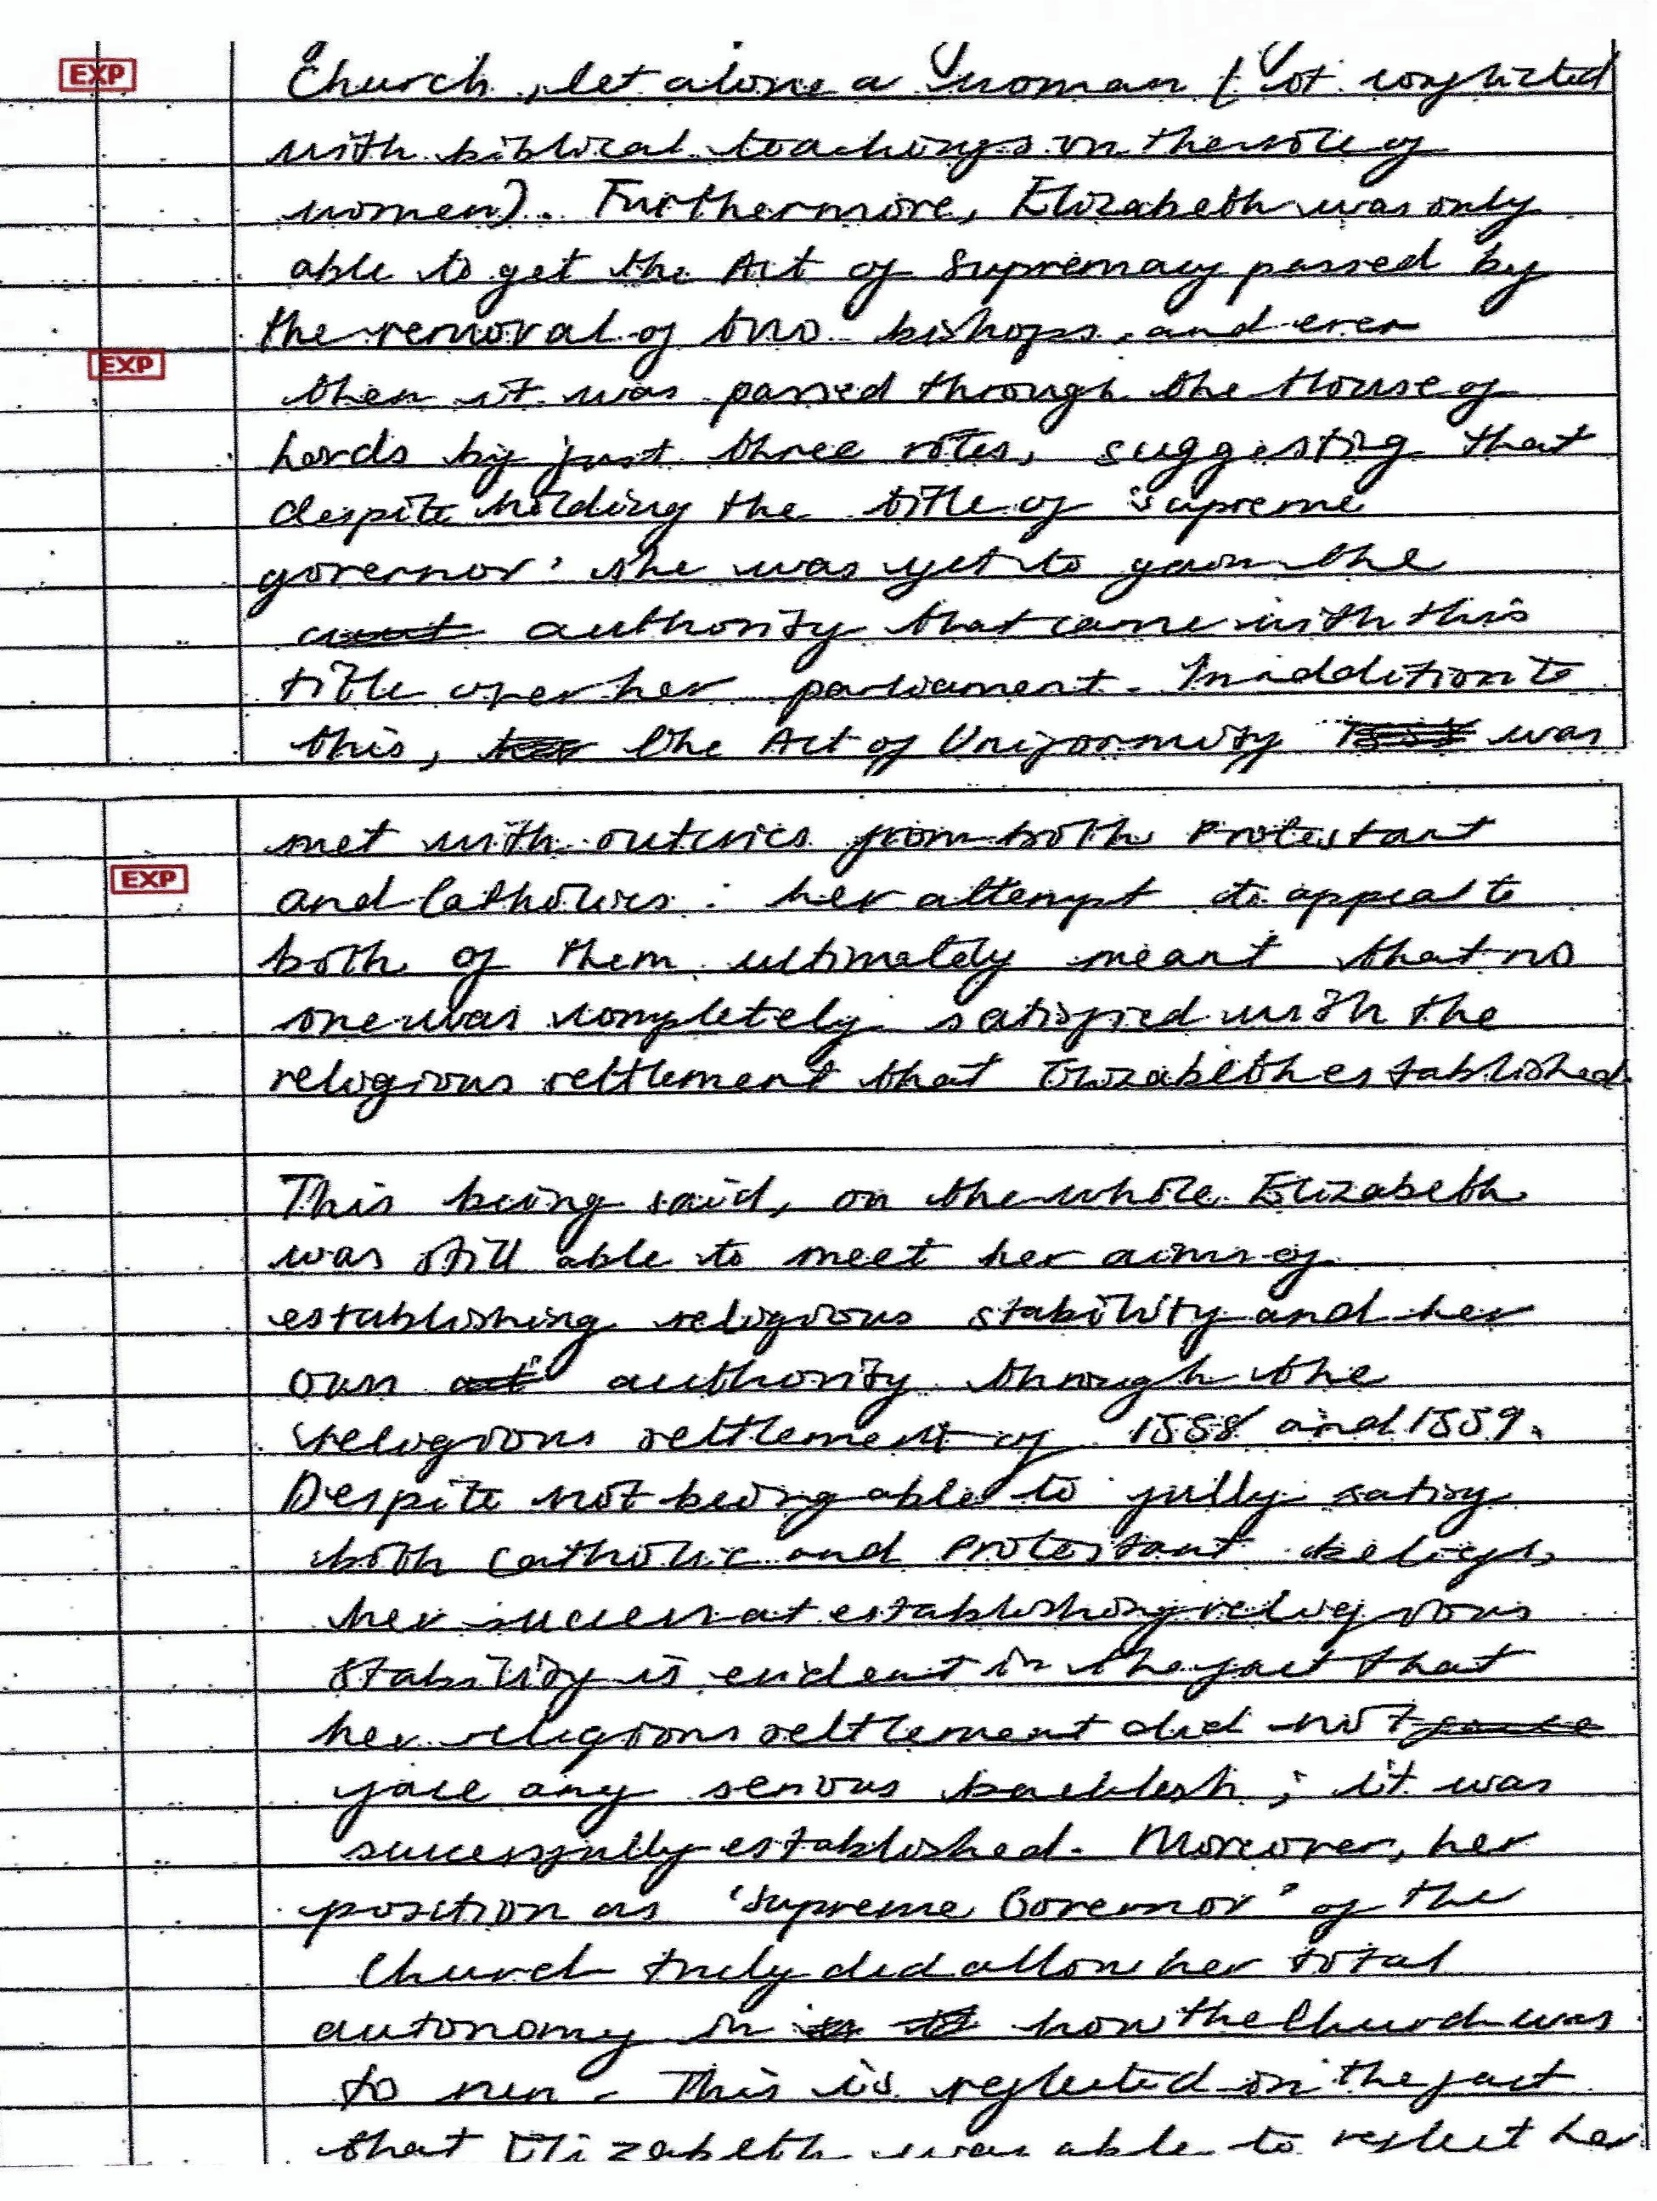 EXP
Church, let alone a woman (it conflicted
with biblical teachings on the role of
women). Furthermore, Elizabeth was only
able to get the Act of Supremacy passed by
the removal of two bishops, and even
EXP
then it was passed through the House of
Lords by just three votes, suggesting that
despite holding the title of 'supreme
governor' she was yet to gain the
authority that came with this
title over her parliament. In addition to
this, the Act of Uniformity was
met with outcries from both Protestant
EXP
and Catholics: her attempt to appeal to
both of them ultimately meant that no
one was completely satisfied with the
religious settlement that Elizabeth established.
This being said, on the whole Elizabeth
was still able to meet her aims of
establishing religious stability and her
own authority through the
religious settlement of 1558 and 1559.
Despite not being able to fully satisy
both Catholic and Protestant beliefs,
her success at establishing religious
stability is evident in the fact that
her religious settlement did not
face any serious backlash; it was
successfully established. Moreover, her
position as 'Supreme Governor' of the
Church truly did allow her total
autonomy in how the Church was
to run. This is reflected in the fact
that Elizabeth was able to reflect her